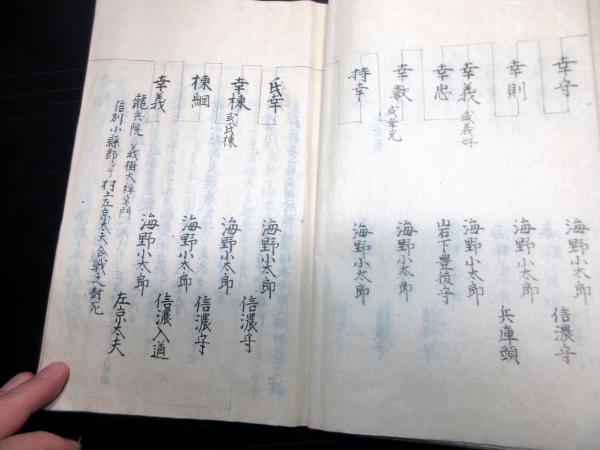 幸守 海野小太郎 信濃守
幸則 海野小太郎 兵庫頭
幸義 或義好 海野小太郎
幸忠 岩下豊後守
幸数 海野小太郎
持幸 海野小太郎
氏幸 海野小太郎
幸棟 或氏棟 海野小太郎 信濃守
棟綱 海野小太郎 信濃守
幸義 海野小太郎 信濃入道 左京太夫
龍兵院
信州小縣郡 村上左京太夫合戦之討死